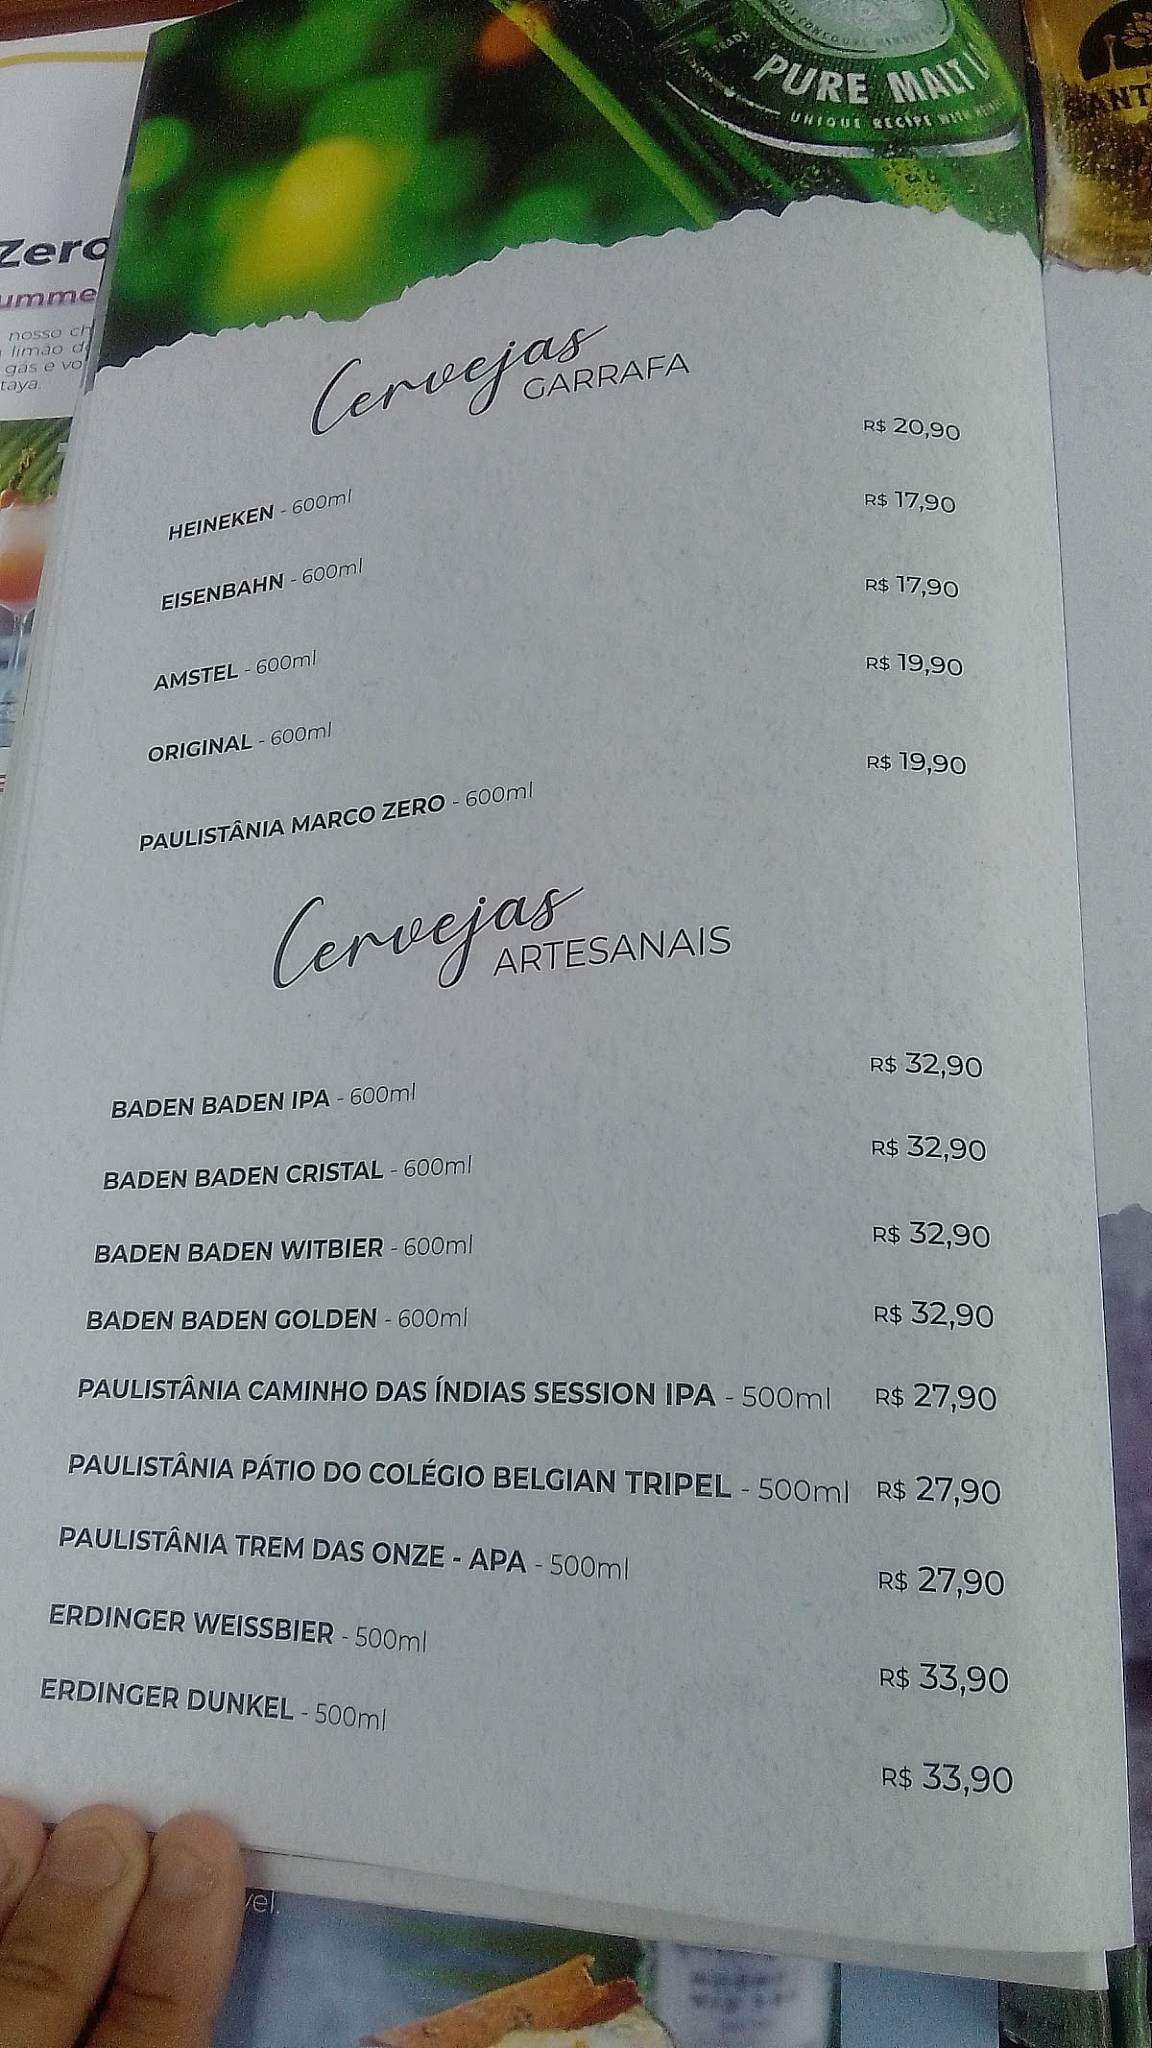 PURE MALT
UNIQUE RECIPE WITH
Zero
nosso
limão
gás e vo
taya.
Cervejas
GARRAFA
HEINEKEN - 600ml R$ 20,90
EISENBAHN - 600ml R$ 17,90
AMSTEL - 600ml R$ 17,90
ORIGINAL - 600ml R$ 19,90
PAULISTÂNIA MARCO ZERO - 600ml R$ 19,90
Cervejas
ARTESANAIS
BADEN BADEN IPA - 600ml R$ 32,90
BADEN BADEN CRISTAL - 600ml R$ 32,90
BADEN BADEN WITBIER - 600ml R$ 32,90
BADEN BADEN GOLDEN - 600ml R$ 32,90
PAULISTÂNIA CAMINHO DAS ÍNDIAS SESSION IPA - 500ml R$ 27,90
PAULISTÂNIA PÁTIO DO COLÉGIO BELGIAN TRIPEL - 500ml R$ 27,90
PAULISTÂNIA TREM DAS ONZE - APA - 500ml R$ 27,90
ERDINGER WEISSBIER - 500ml R$ 33,90
ERDINGER DUNKEL - 500ml R$ 33,90